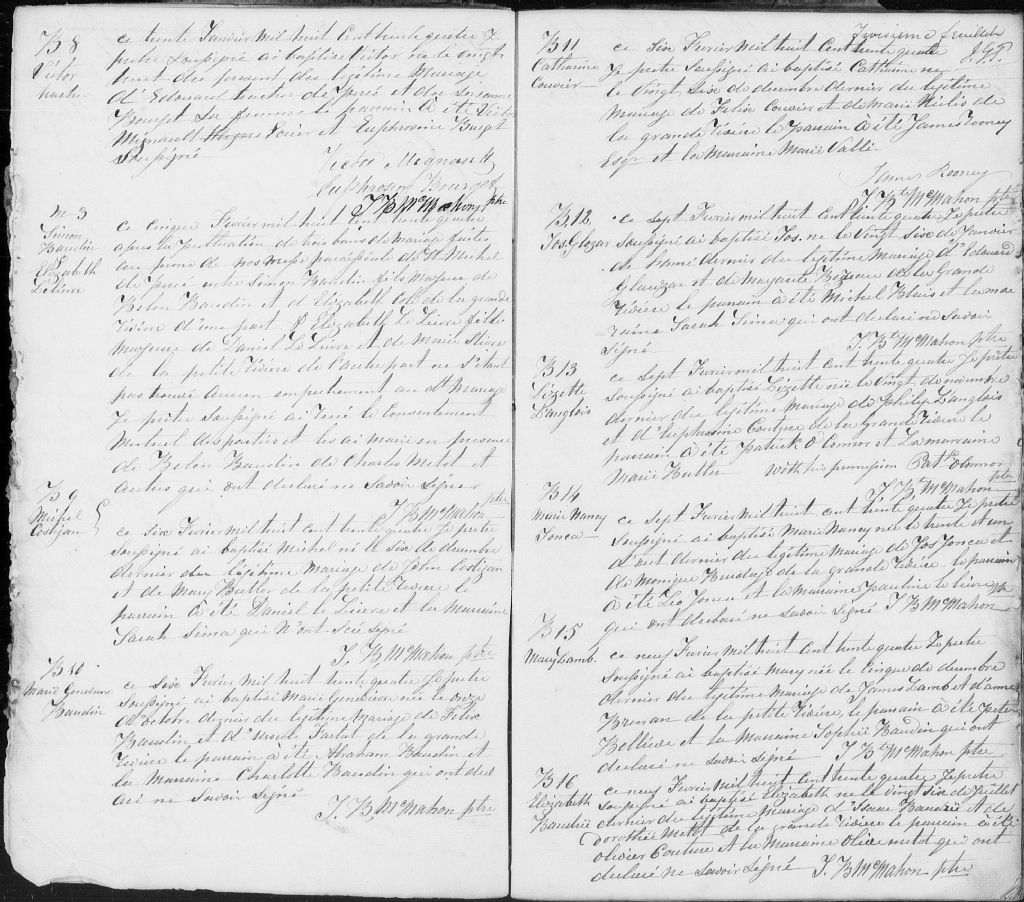 B 8
Victor
ce trente Janvier mil huit cent trente quatre Je
prêtre soussigné ai baptisé Victor né le vingt
huit du present du legitime Mariage
d'Edouard de Percé et de Susanne
Bourget sa femme le parrain à été Victor
Mignault et Euphrosine Burget
Soussigné
Victor Mignault
Euphrosine Bourget
J B McMahon ptre
M 3
Simon
Baudin
Elizabeth
Lelievre
ce cinque Fevrier mil huit cent trente quatre
apres la publication de trois bans de mariage faites
au prone de nos messe paroissiale de St Michel
de Percé entre Simon Baudin fils Majeur de
Belon Baudin et d'Elizabeth Coté de la grande
Riviere d'une part & Elizabeth Le Lievre fille
Majeure de Daniel Le Lievre et de Marie
de la petite Riviere de l'autre part ne s'étant
pas trouvé aucun empechement au dt Mariage
Je prêtre Soussigné ai recu le Consentement
Mutuel des parties et les ai marié en presence
de Belon Baudin de Charles Metot et
autres qui ont declaré ne Savoir Signer
J B McMahon ptre
B 9
Michel
Costijan
ce six Fevrier mil huit cent trente quatre Je prêtre
Soussigné ai baptisé Michel né le six de decembre
dernier du legitime Mariage de John Costigan
et de Mary Butler de la petite Riviere le
parrain à été Daniel le Lievre et la Marraine
Sarah Sima qui N'ont Scée Signé
J. B McMahon ptre
B 10
Marie Genevieve
Baudin
ce six Fevrier mil huit trente quatre Je prêtre
Soussigné ai baptisé Marie Genevieve née le onze
d'octobre dernier du legitime Mariage de Felix
Baudin et d'Ursule Parlat de la grande
Riviere le parrain à été Abraham Baudin et
la Marraine Charlotte Baudin qui ont decl
aré ne Savoir Signé
J. B McMahon ptre
Troisieme feuillet
B 11
Catharine
Couvier
ce Six Fevrier mil huit cent trente quatre
Je prêtre Soussigné ai baptisé Catharine né
le vingt Six de decembre dernier du legitime
Mariage de Felix Couvier et de Marie de
la grande Riviere le parrain à été James Rooney
Esqr et la Marraine Marie Vallé
James Rooney
J. Bte McMahon ptre
B 12
Jos. Glozar
ce sept Fevrier mil huit cent trente quatre Je prêtre
soussigné ai baptisé Jos. né le vingt Six de Janvier
de l'année dernier du legitime mariage d'Edouard
Glauzar et de Margarite Bizeau de la Grande
Riviere le parrain à été Michel Blais et la mar
raine Sarah Sima qui ont declaré ne Savoir
Signé
J. Bt McMahon ptre
B 13
Lizette
Langlois
ce sept Fevrier mil huit cent trente quatre Je prêtre
soussigné ai baptisé Lizette née le vingt de novembre
dernier du legitime Mariage de Philip Langlois
et d'Euphrosine Couture de la Grande Riviere le
parrain à été Patrick O Connor et La marraine
Marie Butler with his permission Patk OConnor
J. Bt McMahon ptre
B 14
Marie Nancy
Jonca
ce sept Fevrier mil huit cent trente quatre Je prêtre
Soussigné ai baptisé Marie Nancy née le trente et un
d'aout dernier du legitime Mariage de Jos Jonca et
de Monique de la grande Riviere le parrain
à été Leo Jonca et la Marraine Pauline le lievre
qui ont declaré ne Savoir Signé J B McMahon ptre
B 15
Mary Lamb.
ce neuf Fevrier mil huit cent trente quatre Je prêtre
Soussigné ai baptisé Mary née le cinque de decembre
dernier du legitime Mariage de James Lamb et d'anne
Brenan de la petite Riviere, le parrain à été Peter
et la Marraine Sophie Baudin qui ont
declaré ne Savoir Signé J Bt McMahon ptre
B 16
Elizabeth
Baudin
ce neuf Fevrier mil huit cent trente quatre Je prêtre
Soussigné ai baptisé Elizabeth né le vingt Six de Juillet
dernier du legitime Mariage d'Isaac Baudin et de
dorothée Metot de la grande Riviere le parrain à été
Olivier Couture et la Marraine Olive metot qui ont
declaré ne Savoir Signé J. B McMahon ptre